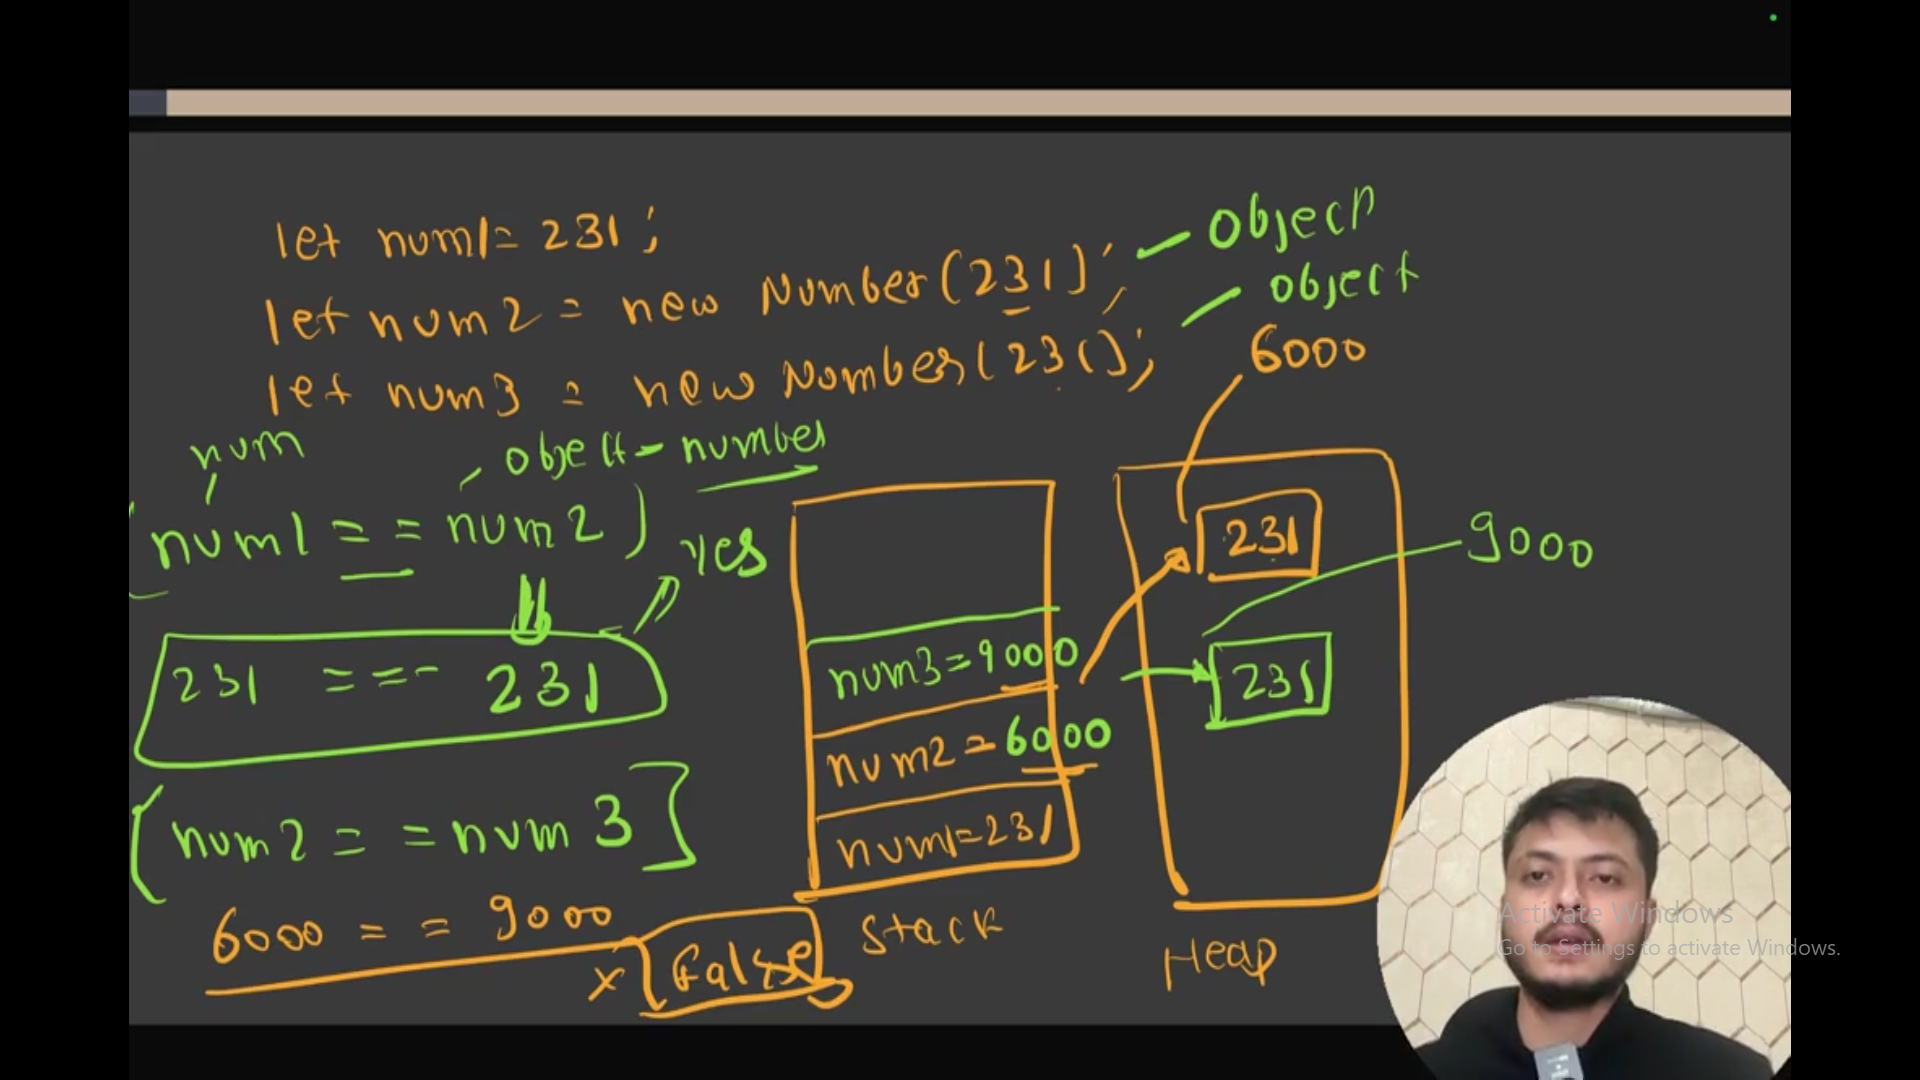 let num1 = 231;
let num2 = new Number(231);
object
let num3 = new Number(231);
object
6000
num
object - number
(num1 == num2)
yes
231 === 231
(num2 == num3]
6000 == 9000
x False
num3=9000
num2=6000
num1=231
Stack
231
9000
231
Heap
Activate Windows
Go to Settings to activate Windows.